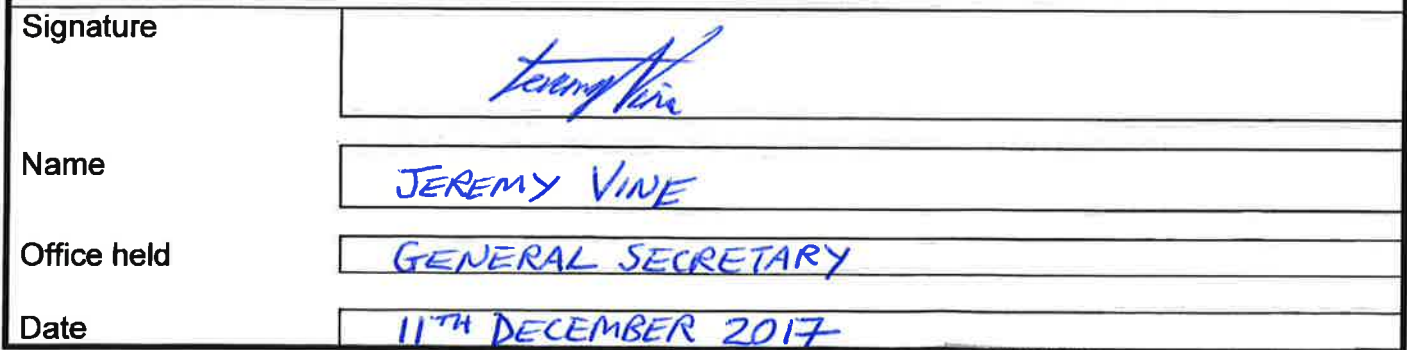 Signature
Jeremy Vine
Name
JEREMY VINE
Office held
GENERAL SECRETARY
Date
11TH DECEMBER 2017